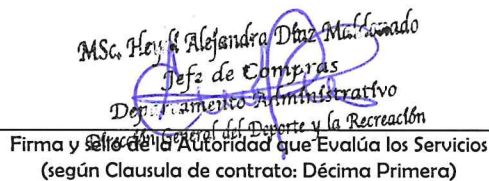 MSc. Heydi Alejandra Díaz Maldonado
Jefa de Compras
Departamento Administrativo
Dirección General del Deporte y la Recreación
Firma y sello de la Autoridad que Evalúa los Servicios
(según Clausula de contrato: Décima Primera)